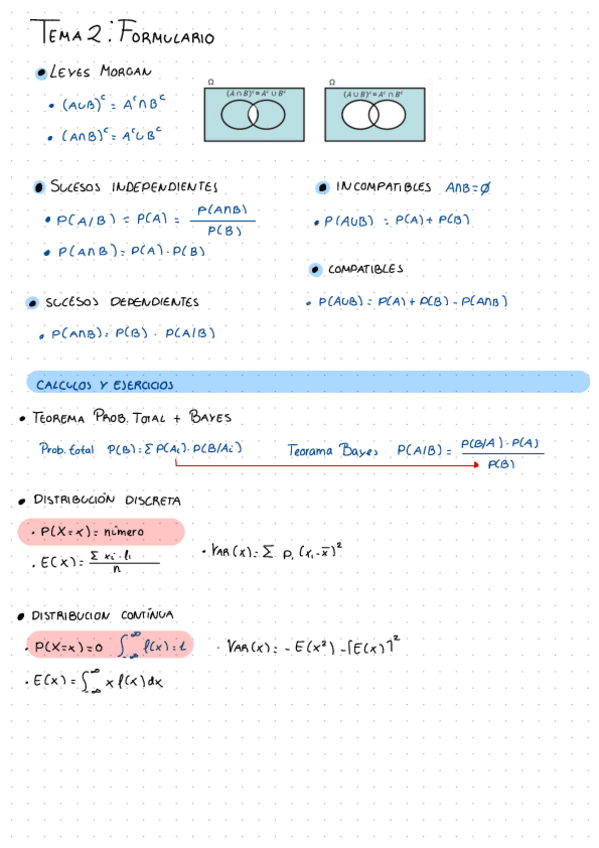 TEMA 2: FORMULARIO
LEYES MORGAN
(A∪B)ᶜ = Aᶜ∩Bᶜ
(A∩B)ᶜ = Aᶜ∪Bᶜ
Ω
(A ∩ B)ᶜ = Aᶜ ∪ Bᶜ
Ω
(A ∪ B)ᶜ = Aᶜ ∩ Bᶜ
SUCESOS INDEPENDIENTES
P(A/B) = P(A) = P(A∩B) / P(B)
P(A∩B) = P(A) · P(B)
INCOMPATIBLES A∩B = ∅
P(A∪B) = P(A) + P(B)
COMPATIBLES
P(A∪B) = P(A) + P(B) - P(A∩B)
SUCESOS DEPENDIENTES
P(A∩B) = P(B) · P(A/B)
CALCULOS Y EJERCICIOS
TEOREMA PROB. TOTAL + BAYES
Prob. total P(B) = Σ P(Ai) · P(B/Ai)
Teorama Bayes P(A/B) = P(B/A) · P(A) / P(B)
DISTRIBUCIÓN DISCRETA
P(X=x) = número
E(X) = Σ xi · fi / n
VAR(x) = Σ Pi (xi - x̄)²
DISTRIBUCION CONTÍNUA
P(X=x) = 0 ∫₋∞^∞ f(x) = 1
VAR(x) = - E(x²) - [E(x)]²
E(x) = ∫₋∞^∞ x f(x) dx